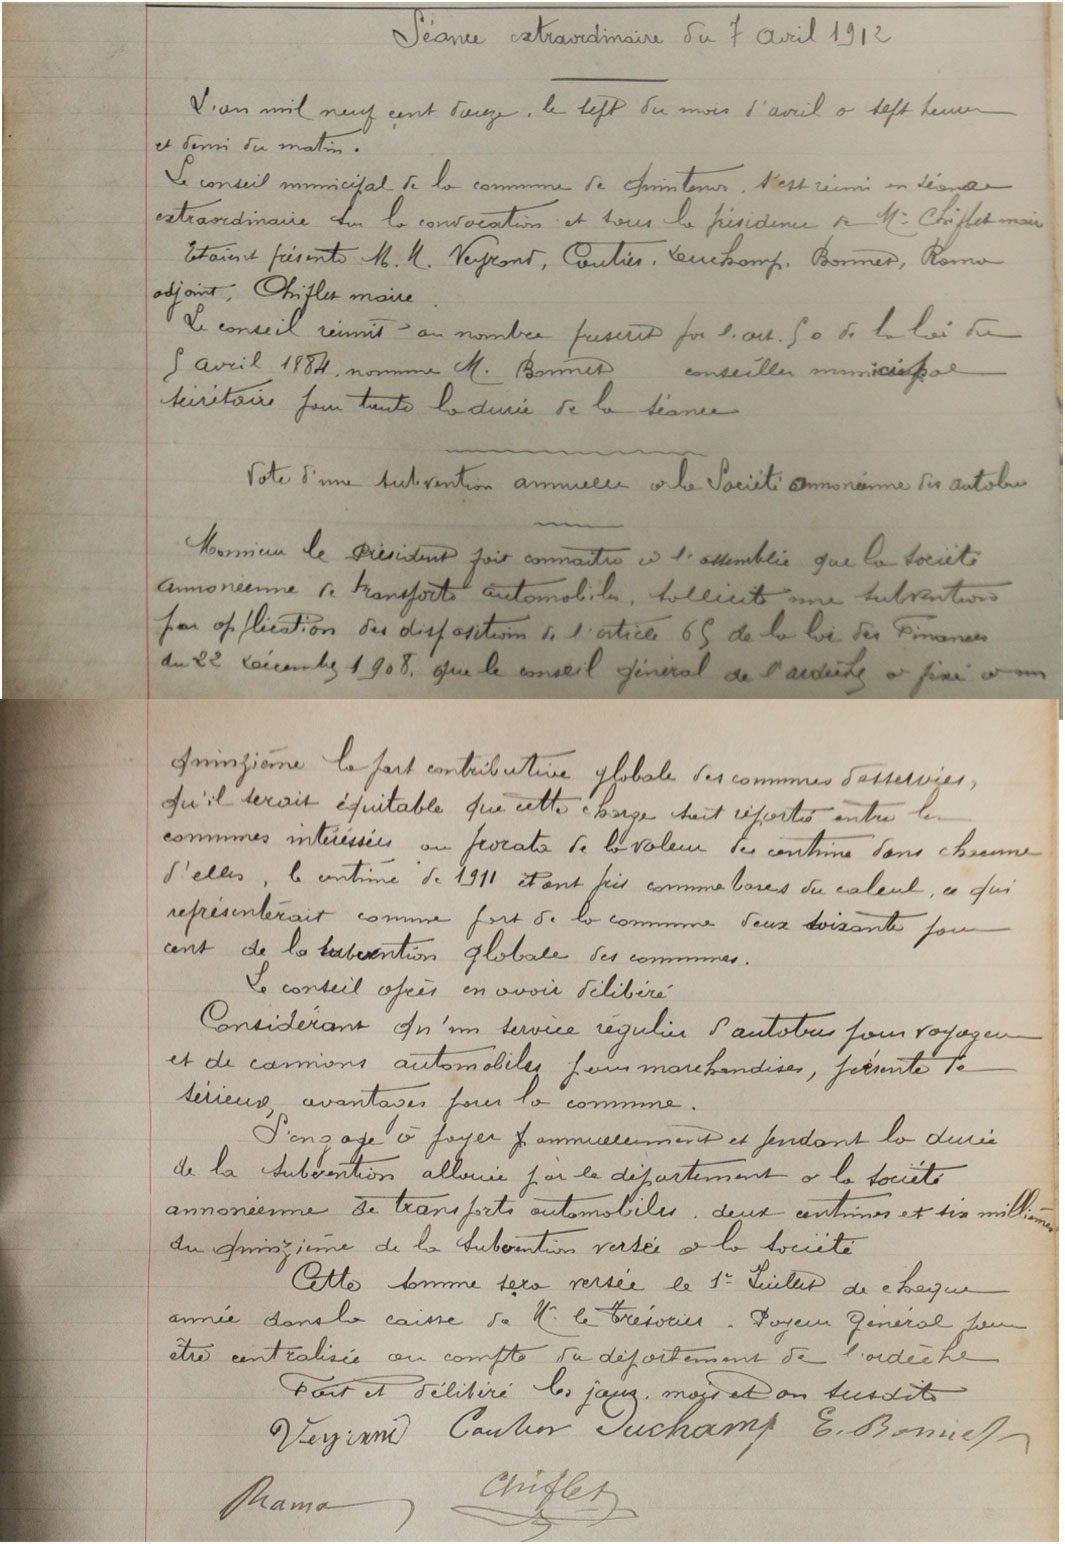 Séance extraordinaire du 7 avril 1912
L'an mil neuf cent douze, le sept du mois d'avril a sept heures
et demi du matin.
Le conseil municipal de la commune de Quintenas, s'est réuni en séance
extraordinaire sur la convocation et sous la présidence de Mr Chiflet maire
Etaient présents M. M. Veyrand, Coutier, Duchamp, Bonnet, Rama
adjoint, Chiflet maire
Le conseil réunit au nombre prescrit par l'art. 50 de la loi du
5 avril 1884, nomme M. Bonnet conseiller municipal
secrétaire pour toute la durée de la séance
Vote d'une subvention annuelle a la Société annonéenne des autobus
Monsieur le Président fait connaître à l'assemblée que la société
annonéenne de transports automobiles, sollicite une subvention
par application des dispositions de l'article 65 de la loi des Finances
du 22 Décembre 1908, que le conseil général de l'ardèche a fixé a un
quinzième la part contributive globale des communes desservies,
qu'il serait équitable que cette charge soit répartie entre les
communes intéressées au prorata de la valeur du centime dans chacune
d'elles, le centime de 1911 étant pris comme bases du calcul, ce qui
représenterait comme part de la commune deux soixante pour
cent de la subvention globale des communes.
Le conseil après en avoir délibéré
Considérant qu'un service régulier d'autobus pour voyageurs
et de camions automobiles pour marchandises, présente de
sérieux, avantages pour la commune.
S'engage à payer annuellement et pendant la durée
de la subvention allouée par le département a la société
annonéenne de transports automobiles, deux centimes et six millièmes
du quinzième de la subvention versée a la société
Cette somme sera versée le 1er Juillet de chaque
année dans la caisse de Mr le Trésorier-Payeur Général pour
être centralisée au compte du département de l'ardèche
Fait et délibéré les jour, mois et an susdits
Veyrand Coutier Duchamp E. Bonnet
Rama Chiflet